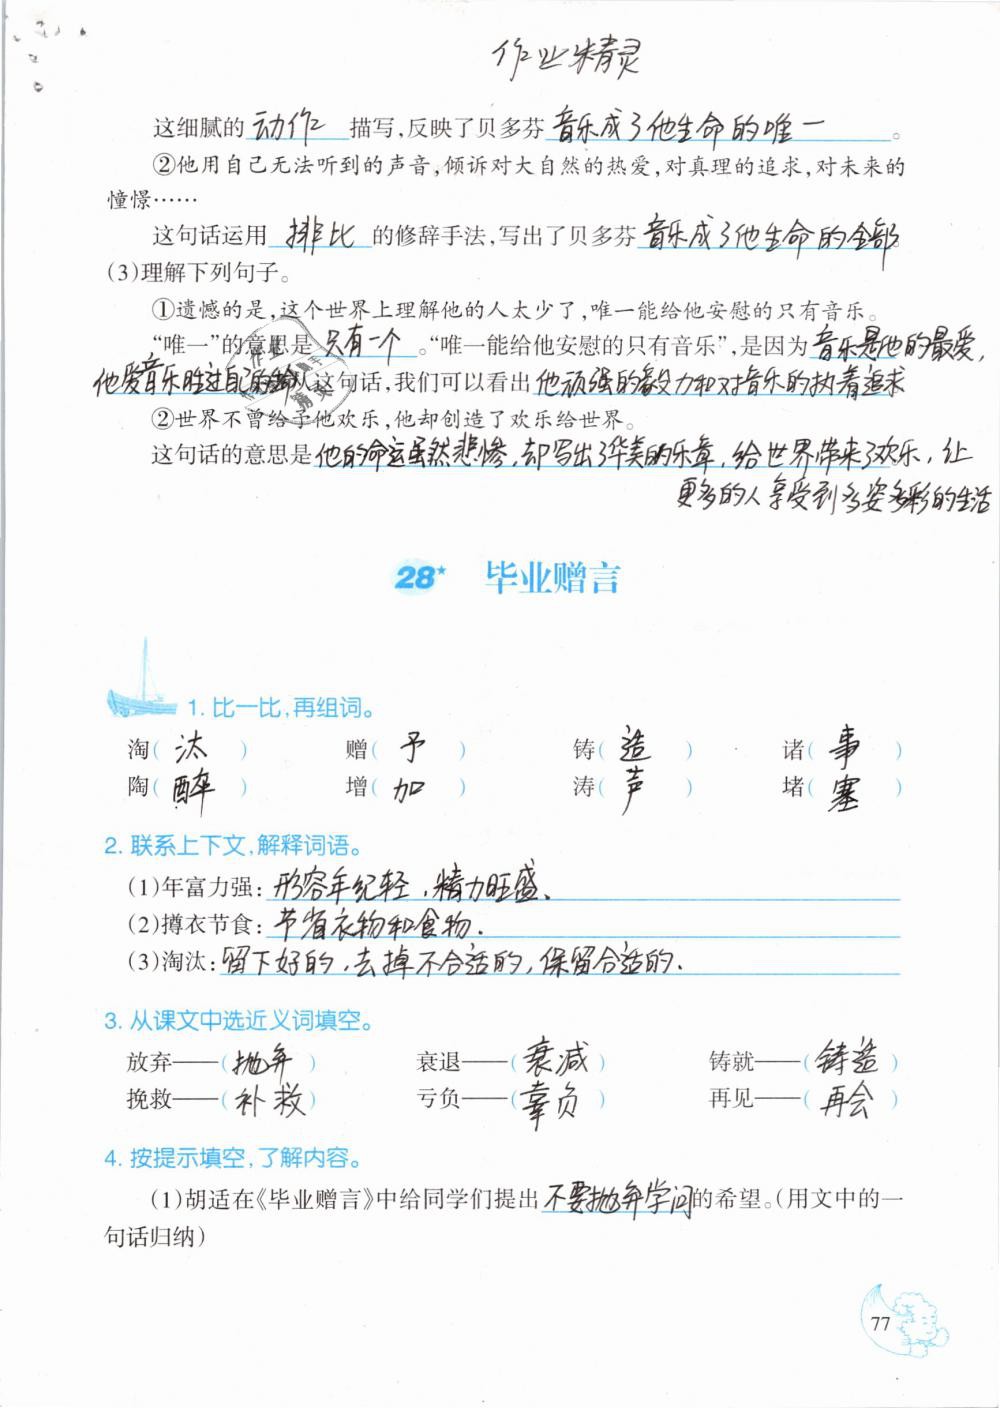 作业精灵
这细腻的 动作 描写,反映了贝多芬 音乐成了他生命的唯一 。
②他用自己无法听到的声音,倾诉对大自然的热爱,对真理的追求,对未来的
憧憬……
这句话运用 排比 的修辞手法,写出了贝多芬 音乐成了他生命的全部。
(3)理解下列句子。
①遗憾的是,这个世界上理解他的人太少了,唯一能给他安慰的只有音乐。
“唯一”的意思是 只有一个 。“唯一能给他安慰的只有音乐”,是因为 音乐是他的最爱,
他爱音乐胜过自己的生命 从这句话,我们可以看出 他顽强的毅力和对音乐的执着追求
②世界不曾给予他欢乐,他却创造了欢乐给世界。
这句话的意思是 他的命运虽然悲惨,却写出了华美的乐章,给世界带来了欢乐,让
更多的人享受到多姿多彩的生活
28* 毕业赠言
1. 比一比,再组词。
淘( 汰 ) 赠( 予 ) 铸( 造 ) 诸( 事 )
陶( 醉 ) 增( 加 ) 涛( 声 ) 堵( 塞 )
2. 联系上下文,解释词语。
(1)年富力强: 形容年纪轻,精力旺盛、
(2)撙衣节食: 节省衣物和食物.
(3)淘汰: 留下好的,去掉不合适的,保留合适的.
3. 从课文中选近义词填空。
放弃——( 抛弃 ) 衰退——( 衰减 ) 铸就——( 铸造 )
挽救——( 补救 ) 亏负——( 辜负 ) 再见——( 再会 )
4. 按提示填空,了解内容。
(1)胡适在《毕业赠言》中给同学们提出 不要抛弃学问 的希望。(用文中的一
句话归纳)
77